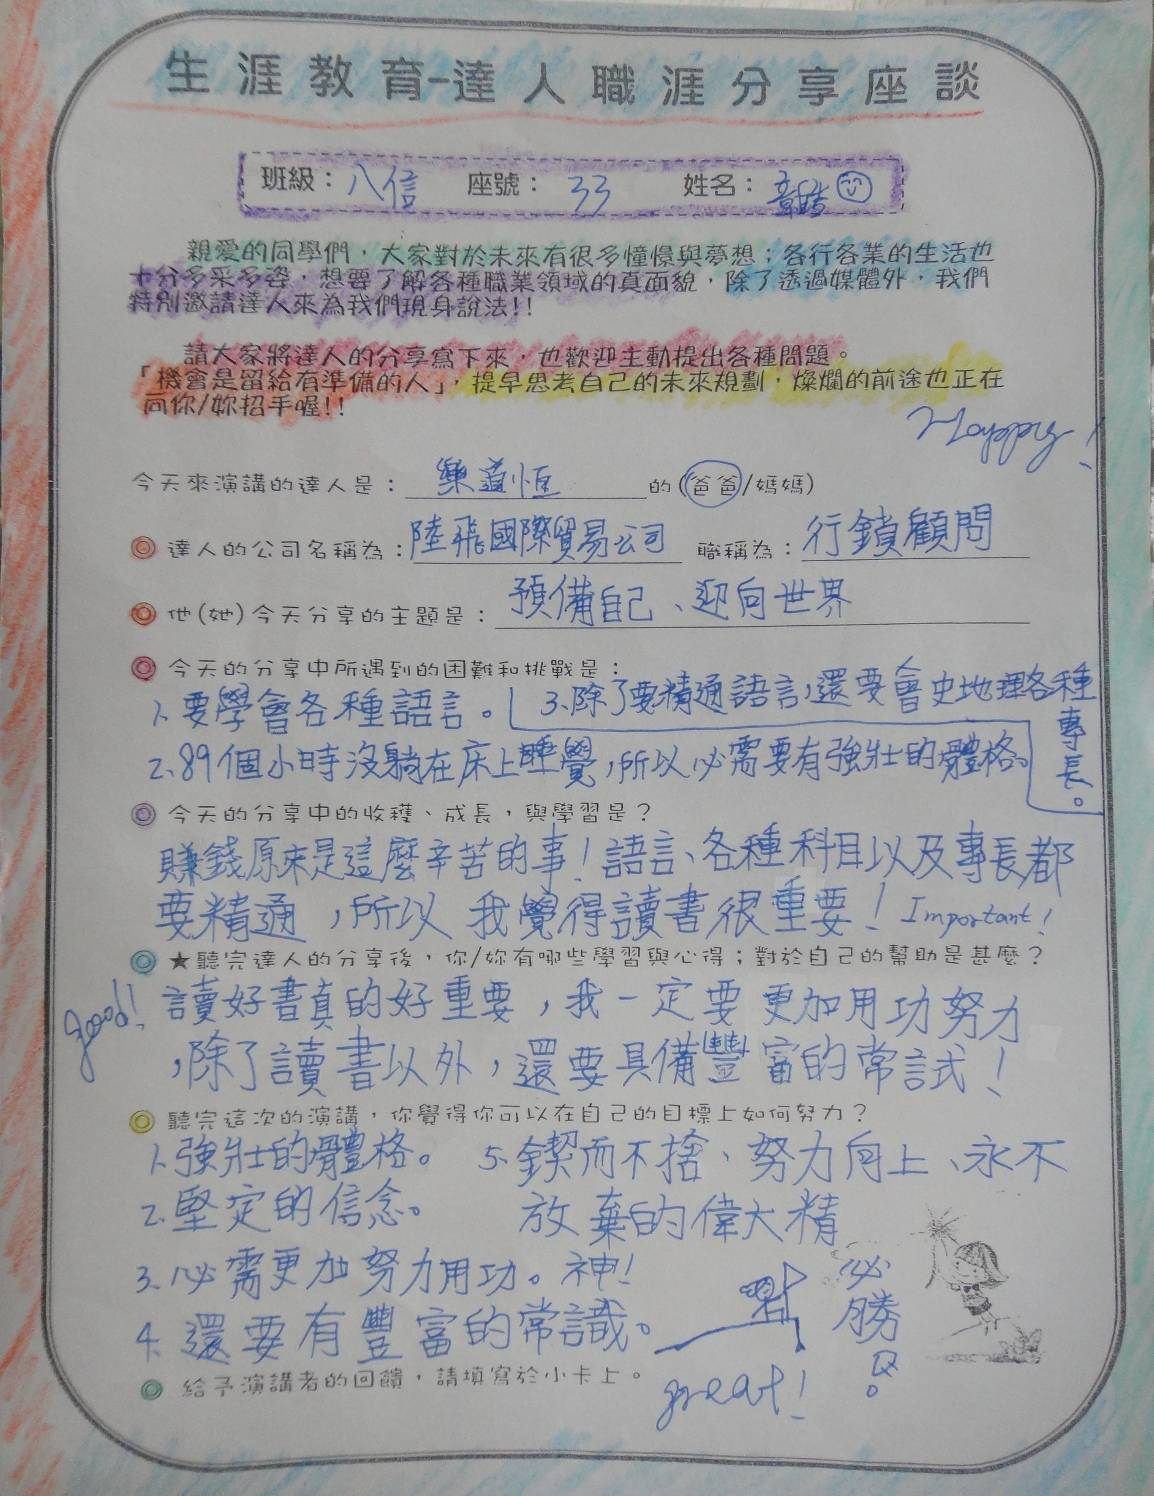 生涯教育-達人職涯分享座談
班級：八信 座號：33 姓名：
親愛的同學們，大家對於未來有很多憧憬與夢想；各行各業的生活也
十分多采多姿，想要了解各種職業領域的真面貌，除了透過媒體外，我們
特別邀請達人來為我們現身說法!!
請大家將達人的分享寫下來，也歡迎主動提出各種問題。
「機會是留給有準備的人」，提早思考自己的未來規劃，燦爛的前途也正在
向你/妳招手喔!!
Happy!
今天來演講的達人是：樂道恒的(爸爸/媽媽)
達人的公司名稱為：陸飛國際貿易公司 職稱為：行鎖顧問
他(她)今天分享的主題是：預備自己、迎向世界
今天的分享中所遇到的困難和挑戰是：
1.要學會各種語言。
3.除了要精通語言，還要會史地理各種專長。
2.89個小時沒躺在床上睡覺，所以必需要有強壯的體格。
今天的分享中的收穫、成長，與學習是？
賺錢原來是這麼辛苦的事！語言、各種科目以及專長都
要精通，所以我覺得讀書很重要！Important!
★聽完達人的分享後，你/妳有哪些學習與心得；對於自己的幫助是甚麼？
good!
讀好書真的好重要，我一定要更加用功努力
，除了讀書以外，還要具備豐富的常試！
聽完這次的演講，你覺得你可以在自己的目標上如何努力？
1.強壯的體格。
2.堅定的信念。
3.必需更加努力用功。
4.還要有豐富的常識。
5.鍥而不捨、努力向上、永不
放棄的偉大精
神！
必勝
給予演講者的回饋，請填寫於小卡上。
great!